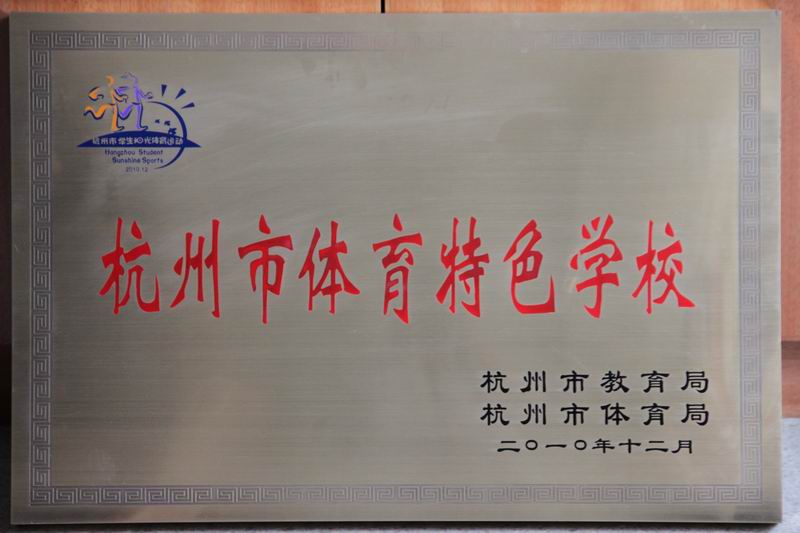 杭州市学生阳光体育运动
Hangzhou Student
Sunshine Sports
2010.12
杭州市体育特色学校
杭州市教育局
杭州市体育局
二〇一〇年十二月